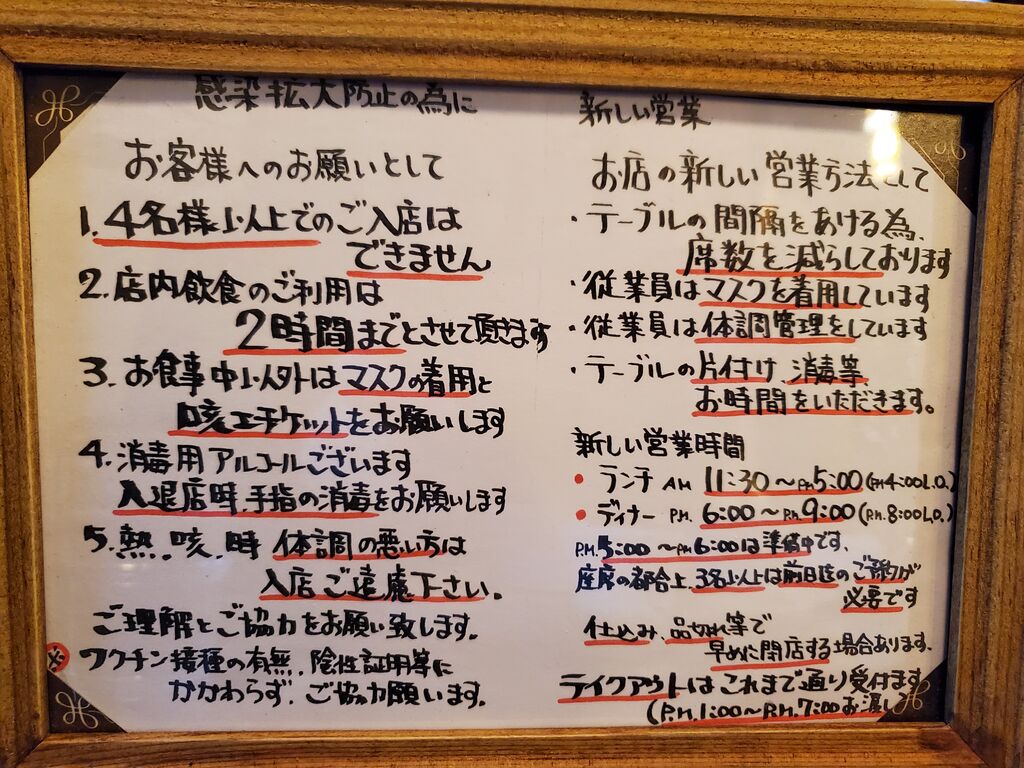 感染拡大防止の為に
お客様へのお願いとして
1. 4名様以上でのご入店は
できません
2. 店内飲食のご利用は
2時間までとさせて頂きます
3. お食事中以外はマスクの着用と
咳エチケットをお願いします
4. 消毒用アルコールございます
入退店時、手指の消毒をお願いします
5. 熱、咳、時 体調の悪い方は
入店ご遠慮下さい。
ご理解とご協力をお願い致します。
※ ワクチン接種の有無、陰性証明等に
かかわらず、ご協力願います。
新しい営業
お店の新しい営業方法として
・テーブルの間隔をあける為、
席数を減らしております
・従業員はマスクを着用しています
・従業員は体調管理をしています
・テーブルの片付け 消毒等
お時間をいただきます。
新しい営業時間
• ランチ AM 11:30〜P.M.5:00(P.M4:00L.O.)
• ディナー P.M. 6:00〜P.M.9:00(P.M.8:00L.O.)
P.M.5:00〜P.M6:00は準備中です、
座席の都合上、3名以上は前日迄のご予約が
必要です
仕込み、品切れ等で
早めに閉店する場合あります、
テイクアウトはこれまで通り受付ます
(P.M.1:00〜P.M.7:00お渡し)